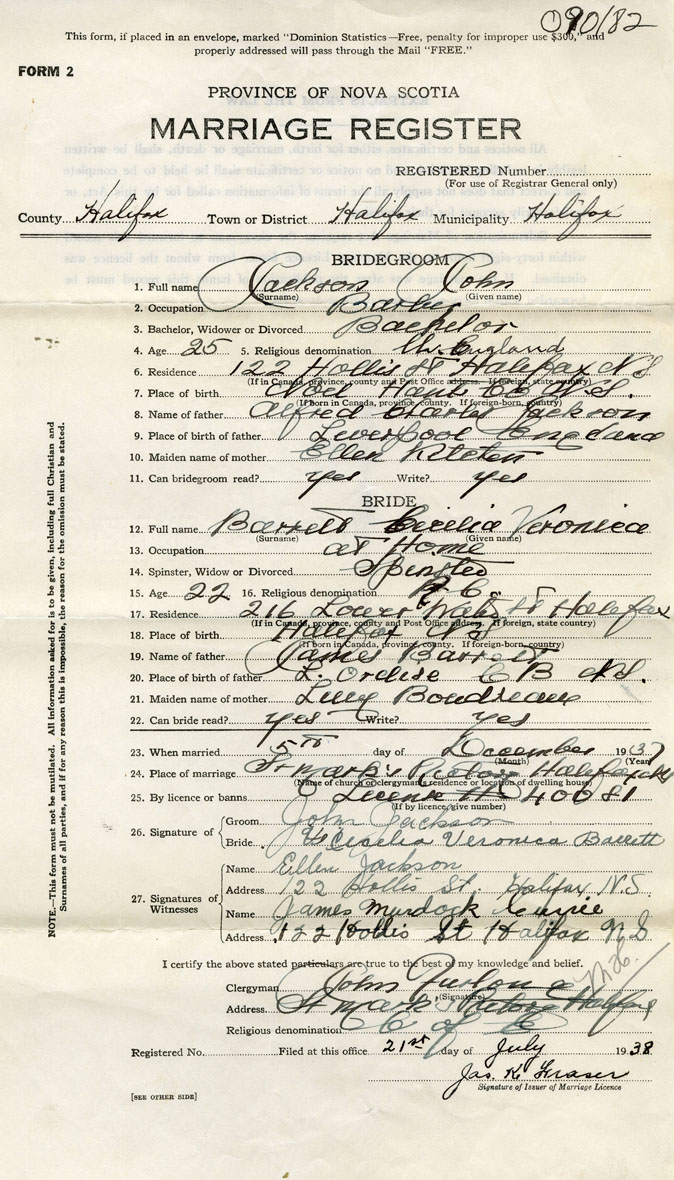 090/82
This form, if placed in an envelope, marked "Dominion Statistics—Free, penalty for improper use $300," and
properly addressed will pass through the Mail "FREE."
FORM 2
PROVINCE OF NOVA SCOTIA
MARRIAGE REGISTER
REGISTERED Number
(For use of Registrar General only)
County Halifax Town or District Halifax Municipality Halifax
BRIDEGROOM
1. Full name Jackson John
(Surname) (Given name)
2. Occupation
3. Bachelor, Widower or Divorced Bachelor
4. Age 25 5. Religious denomination Ch. England
6. Residence 122 Hollis St Halifax N S
(If in Canada, province, county and Post Office address. If foreign, state country)
7. Place of birth N.S.
(If born in Canada, province, county. If foreign-born, country)
8. Name of father Alfred Charles Jackson
9. Place of birth of father Liverpool England
10. Maiden name of mother Ellen
11. Can bridegroom read? yes Write? yes
BRIDE
12. Full name Barrett Cecilia Veronica
(Surname) (Given name)
13. Occupation at Home
14. Spinster, Widow or Divorced Spinster
15. Age 22 16. Religious denomination R. C.
17. Residence 216 Lower Water St Halifax
(If in Canada, province, county and Post Office address. If foreign, state country)
18. Place of birth Halifax N S
(If born in Canada, province, county. If foreign-born, country)
19. Name of father James Barrett
20. Place of birth of father L. Ordise C B N.S.
21. Maiden name of mother Lucy Boudreau
22. Can bride read? yes Write? yes
23. When married 5th day of December 1937
(Month) (Year)
24. Place of marriage St mark's Rectory Halifax
(Name of church or clergyman's residence or location of dwelling house)
25. By licence or banns License 40081
(If by licence, give number)
26. Signature of
Groom John Jackson
Bride Cecelia Veronica Barrett
27. Signatures of Witnesses
Name Ellen Jackson
Address 122 Hollis St. Halifax N.S
Name James Murdock Currie
Address 122 Hollis St Halifax N S
I certify the above stated particulars are true to the best of my knowledge and belief.
Clergyman John Furlong
(Signature)
Address St mark's Rectory Halifax
Religious denomination C of E
Registered No. Filed at this office 21st day of July 1938
Jas. K. Fraser
Signature of Issuer of Marriage Licence
[SEE OTHER SIDE]
NOTE.—This form must not be mutilated. All information asked for is to be given, including full Christian and
Surnames of all parties, and if for any reason this is impossible, the reason for the omission must be stated.